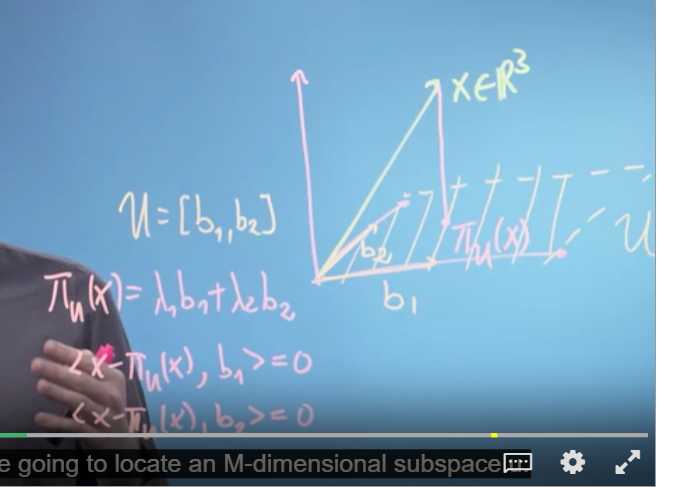 x∈ℝ³
U=[b₁,b₂]
b₂
π_U(x)
U
π_U(x)=λ₁b₁+λ₂b₂
b₁
<x-π_U(x), b₁>=0
<x-π_U(x), b₂>=0
e going to locate an M-dimensional subspace